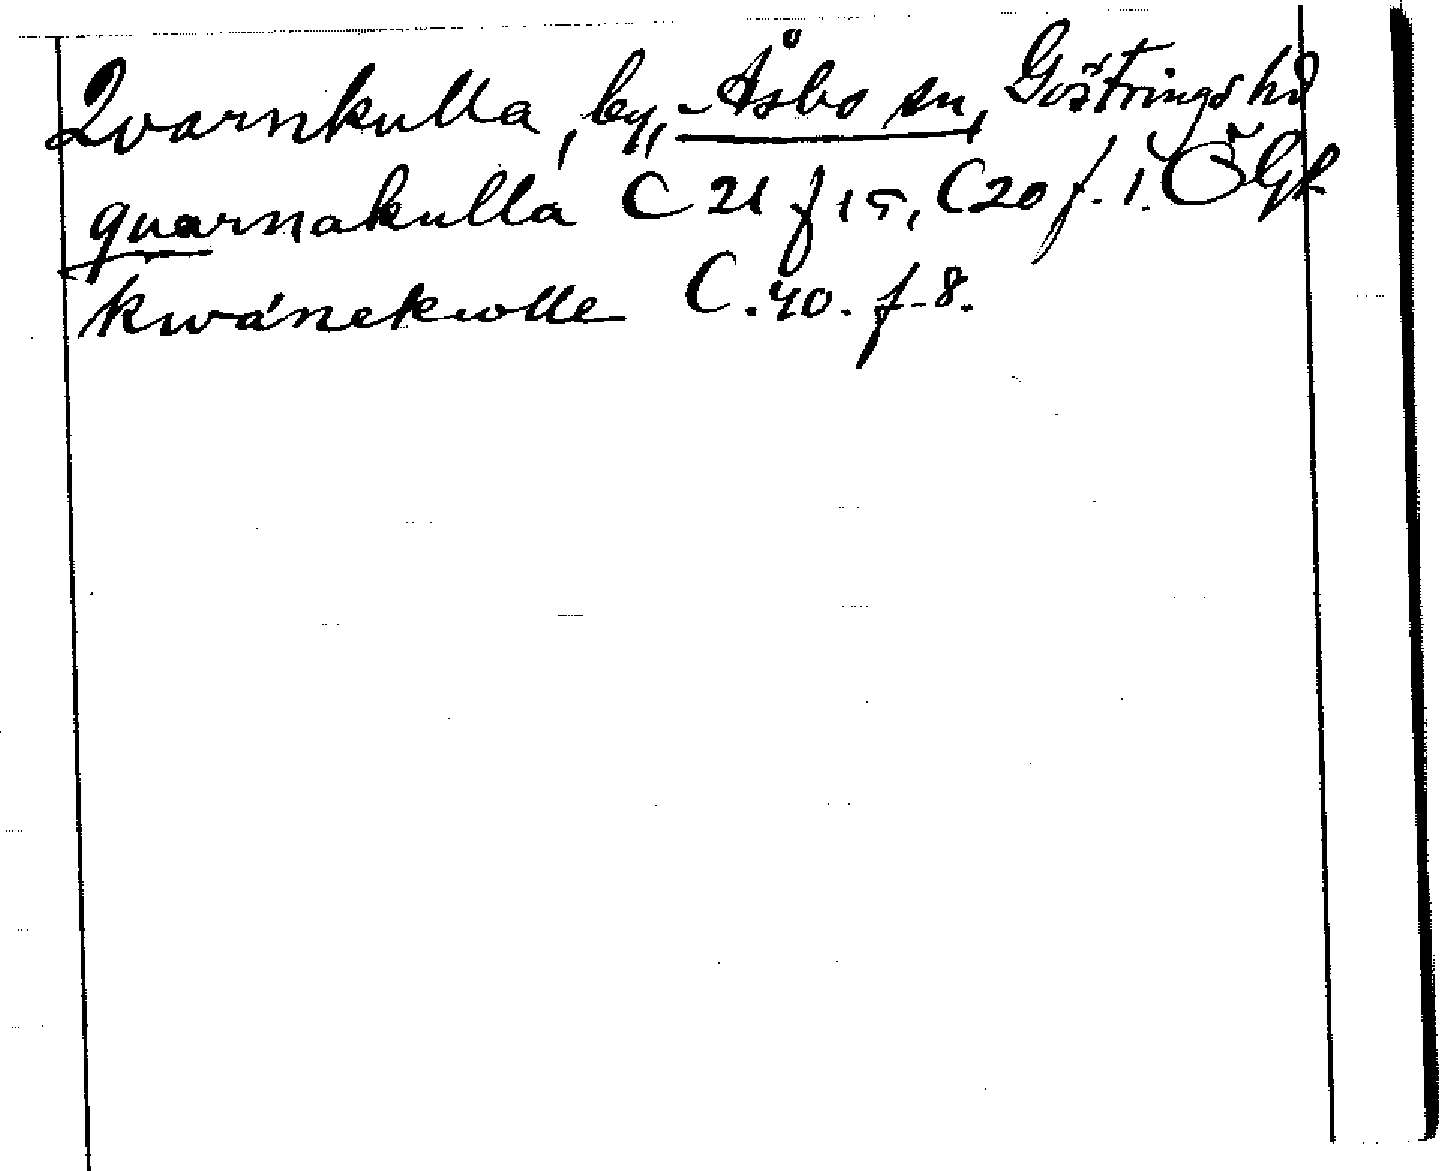 Qvarnkulla, by, Åsbo sn, Göstrings hd
qvarnakulla C 21 f 15, C 20 f. 1. ÖGl
kwánekwlle C. 40. f. 8.